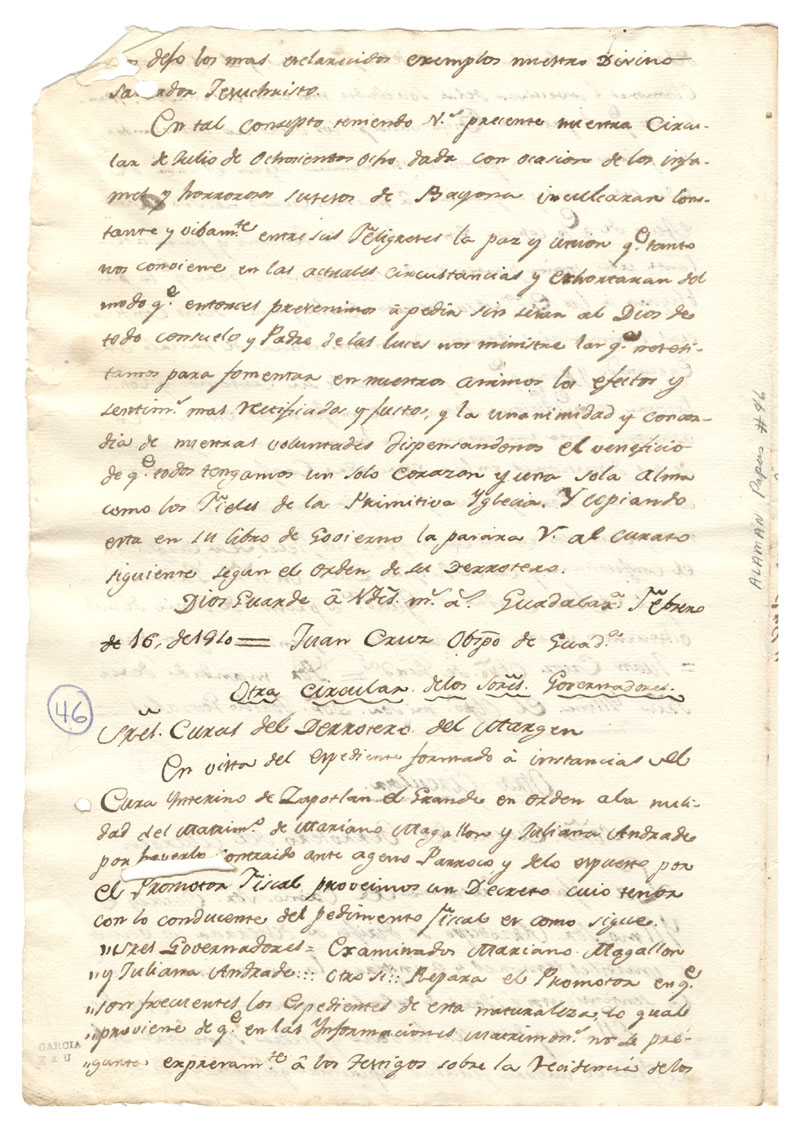 dejo los mas esclarecidos exemplos nuestro Divino
Salvador Jesuchristo.
En tal consepto teniendo V.s precente nuestra Circu-
lar de Julio de Ochosientos ocho dada con ocasion de los infa-
mes y horrorosos susesos de Bayona inculcaran cons-
tante y vibam.te entre sus Feligreses la paz y union q.e tanto
nos conviene en las actuales circustancias y exhortaran del
modo q.e entonces prevenimos â pedir sin sesar al Dios de
todo consuelo y Padre de las luces nos ministre las q.e nesesi-
tamos para fomentar en nuestros animos los efectos y
sentim.s mas rectificados y justos, y la unanimidad y concor-
dia de nuestras voluntades dispensandonos el veneficio
de q.e todos tengamos un solo corazon y una sola alma
como los Fieles de la Primitiva Yglecia. Y copiando
esta en su libro de Govierno la pasara V. al curato
siguiente segun el orden de su Derrotero.
Dios Guarde â V. m.s a.s Guadalax.a Febrero
de 16, de 1810 = Juan Cruz Obispo de Guad.a
Otra Circular de los Sores. Governadores.
Sres. Curas del Derrotero del Margen
En vista del espediente formado â instancias del
Cura Ynterino de Zapotlan el Grande en orden a la nuli-
dad del Matrim.o de Mariano Magallon y Juliana Andrade
por haverlo contraido ante ageno Parroco y de lo espuesto por
el Promotor Fiscal proveimos un Decreto cuio tenor
con lo conducente del pedimento fiscal es como sigue.
"Sres Governadores = Examinados Mariano Magallon
"y Juliana Andrade::: Otro si: Repara el Promotor en q.e
"son frecuentes los Espedientes de esta naturaleza, lo qual
"proviene de q.e en las Ynformaciones Matrimon.s no se pre-
"gunte expresam.te â los Testigos sobre la recidencia de los
46
ALAMÁN Papers #46
GARCIA